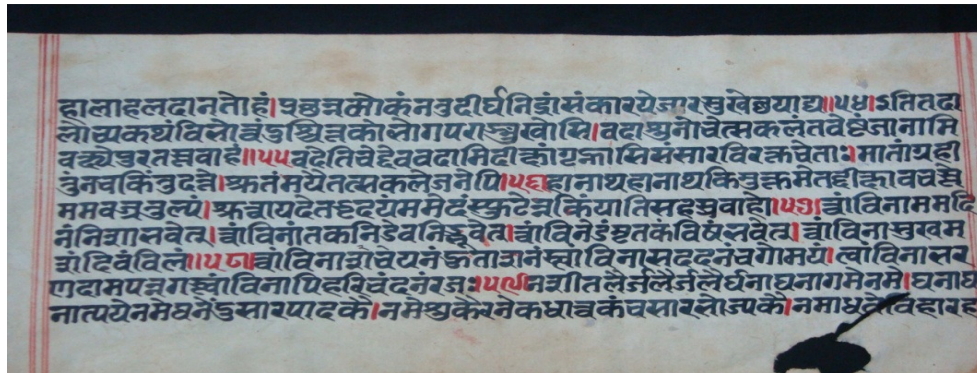 हालाहलदानतोहं।प्रछन्नमौकंनवुदीर्घनिद्रांसंकारयेज्जारसुखेछयाद्य॥५४।इतितदा
लोच्यकथविलोच्चंडश्चिन्नकोलोगपराङ्मुखोसि।वदाश्रुनोचेत्सकलंतवेष्टंजानामि
वक्ष्येपुरतस्तवाहं॥५५वदेतिचेद्देववदामिदीक्षांगृह्णासिसंसारविरक्तचेताः।मातांग्रही
तुंनचकिंनुदत्ते।श्रुतंमयैतत्सकलेजनेपि।५६।हानाथहानाथकिमुक्तमेतद्दीक्षावचस्ते
ममवज्रतुल्यं।श्रुत्वायदेतद्हृदयंममेदंस्फुटेन्नकिंयातिसहस्रवाहो।५७।त्वांविनाममदि
नंनिशासवेत्।त्वांविनांतकनिडेवनिद्रवेत।त्वांविनेडंमृतकेविषंसवेत।त्वांविनासुखम
त्रांदिवंविलं॥५८॥त्वांविनात्रोचेयनंऊतोज्ञानंस्त्वाविनासददनंचगोमयं।त्वांविनासर
णदामपन्नगस्त्वांविनापिहरिचंदनंरजः।५९।नशीतलैर्जलैर्जलैर्घनाघनागमेनमे।घनाघ
नात्पयेनमेघनेंडुसारपादकै।नमेशुकैरनेकधात्वकंचसारसोज्पकै।नमाधवे विहारह